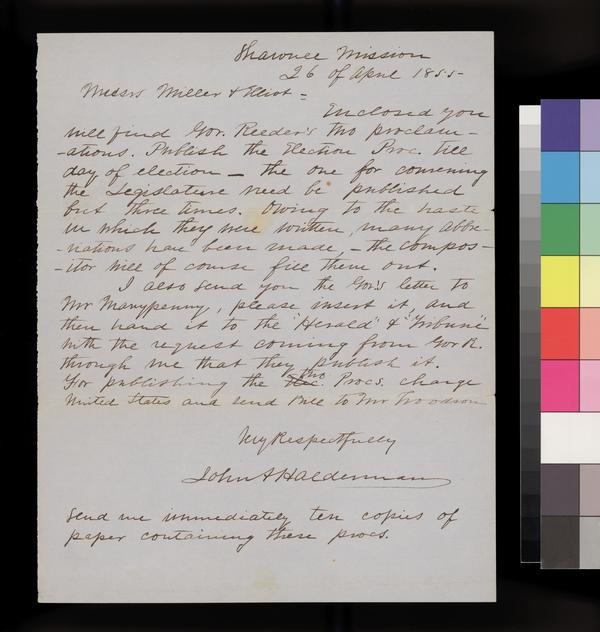 Shawnee Mission
26 of April 1855-
Messrs Miller & Elliot =
Enclosed you
will find Gov. Reeder's two proclam-
-ations. Publish the Election Proc. till
day of election — the one for convening
the Legislature need be published
but three times. Owing to the haste
in which they were written, many abbre-
-viations have been made, - the compos-
-itor will of course fill them out.
I also send you the Gov's letter to
Mr Manypenny, please insert it, and
then hand it to the "Herald" & "Tribune"
with the request coming from Gov R.
through me that they publish it.
For publishing the two Procs. charge
United States and send Bill to Mr Woodson
Very Respectfully
John A Halderman
Send me immediately ten copies of
paper containing these procs.